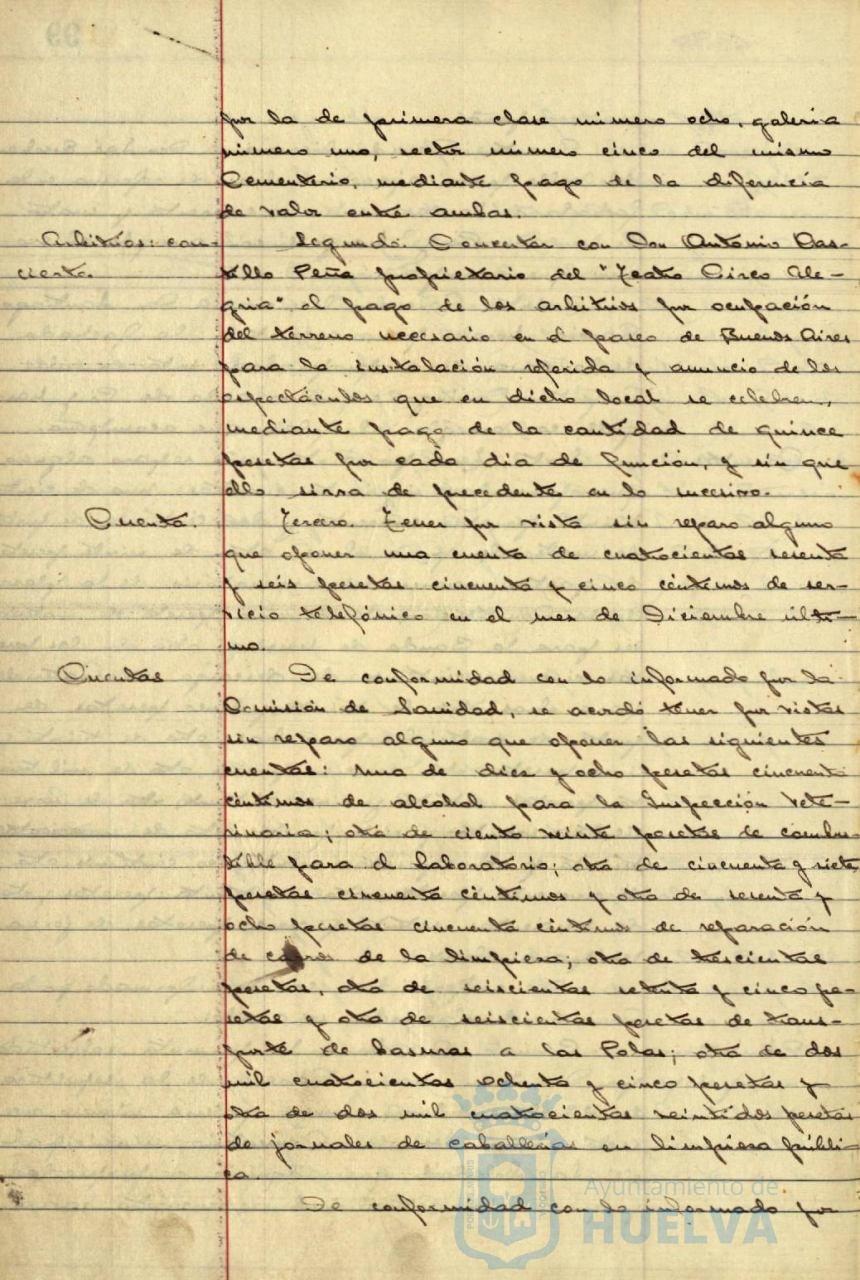 por la de primera clase número ocho, galeria
número uno, sector número cinco del mismo
Cementerio, mediante pago de la diferencia
de valor entre ambas.
Arbitrios: con-
cierto.
Segundo. Concertar con Don Antonio Cas-
tillo Peña propietario del "Teatro Circo Ale-
gria" el pago de los arbitrios por ocupación
del terreno necesario en el paseo de Buenos Aires
para la instalación referida y anuncio de los
espectáculos que en dicho local se celebren,
mediante pago de la cantidad de quince
pesetas por cada dia de función, y sin que
ello sirva de precedente en lo sucesivo.
Cuenta.
Tercero. Tener por vista sin reparo alguno
que oponer una cuenta de cuatrocientas sesenta
y seis pesetas cincuenta y cinco céntimos de ser-
vicio telefónico en el mes de Diciembre últi-
mo.
Cuentas
De conformidad con lo informado por la
Comisión de Sanidad, se acordó tener por vistas
sin reparo alguno que oponer las siguientes
cuentas: una de diez y ocho pesetas cincuenta
céntimos de alcohol para la Inspección Vete-
rinaria; otra de ciento veinte pesetas de combus-
tible para el Laboratorio; otra de cincuenta y siete
pesetas cincuenta céntimos y otra de sesenta y
ocho pesetas cincuenta céntimos de reparación
de carros de la limpieza; otra de trescientas
pesetas, otra de seiscientas setenta y cinco pe-
setas y otra de seiscientas pesetas de trans-
porte de basuras a las Polas; otra de dos
mil cuatrocientas ochenta y cinco pesetas y
otra de dos mil cuatrocientas veintidos pesetas
de jornales de caballerías en limpieza públi-
ca.
De conformidad con lo informado por
Ayuntamiento de
HUELVA